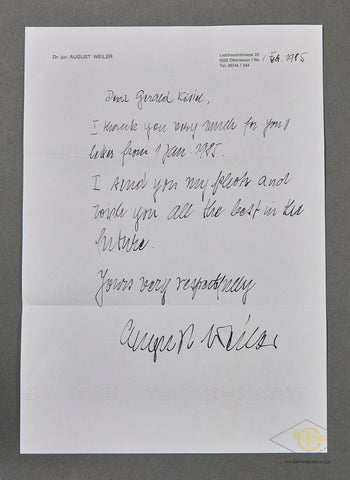 Dr. jur. AUGUST WEILER
Liebfrauenstrasse 22
6532 Oberwesel / Rh.
Tel. 06744 / 344
1. Feb. 1985
Dear Gerald
I thank you very much for your
letter from 1 Jan. 1985.
I send you my photo and
wish you all the best in the
future.
Yours very respectfully
August Weiler